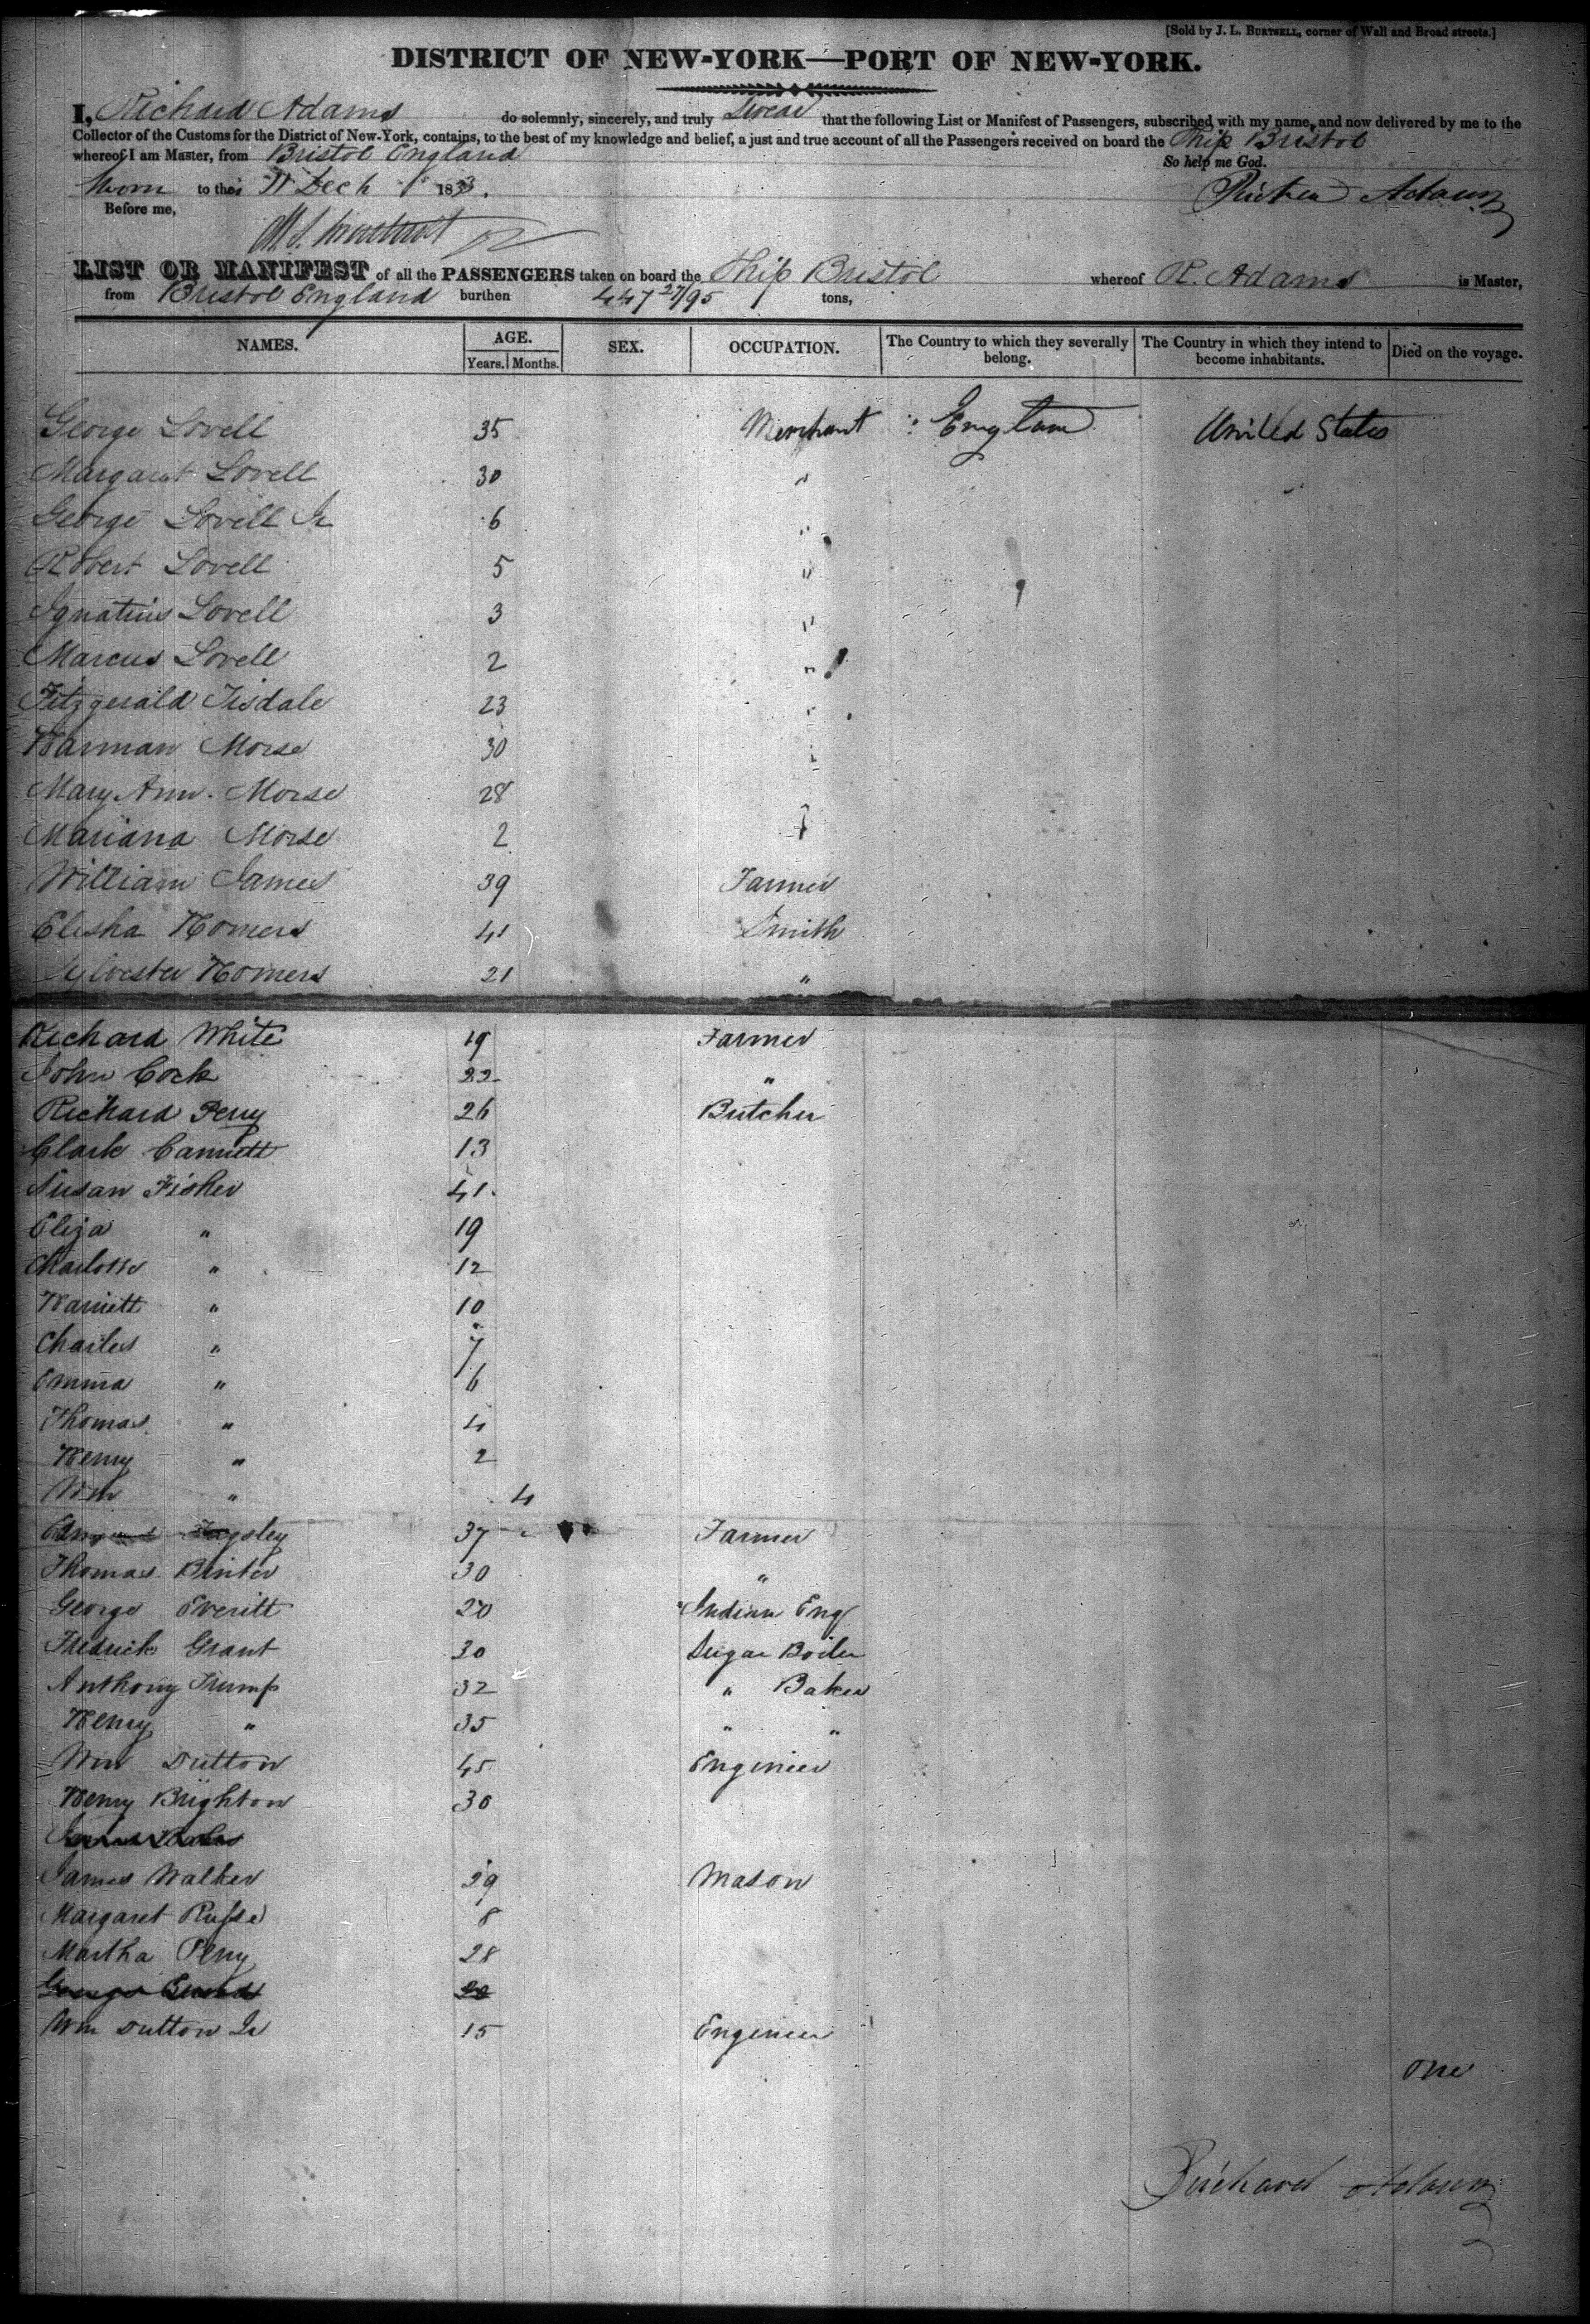 [Sold by J. L. BURTSELL, corner of Wall and Broad streets.]
DISTRICT OF NEW-YORK—PORT OF NEW-YORK.
I, Richard Adams do solemnly, sincerely, and truly Swear that the following List or Manifest of Passengers, subscribed with my name, and now delivered by me to the
Collector of the Customs for the District of New-York, contains, to the best of my knowledge and belief, a just and true account of all the Passengers received on board the Ship Bristol
whereof I am Master, from Bristol England
So help me God.
Sworn to the Dech 1833.
Richard Adams
Before me,
LIST OR MANIFEST of all the PASSENGERS taken on board the Ship Bristol whereof R. Adams is Master,
from Bristol England burthen 447 27/95 tons,
NAMES. AGE. Years. Months. SEX. OCCUPATION. The Country to which they severally belong. The Country in which they intend to become inhabitants. Died on the voyage.
George Lovell 35 Merchant England United States
Margaret Lovell 30 "
George Lovell Jr 6 "
Robert Lovell 5 "
Ignatius Lovell 3 "
Marcus Lovell 2 "
Fitzgerald Tisdale 23 "
Harman Morse 30 "
Mary Ann Morse 28
Mariana Morse 2
William James 39 Farmer
Elisha Homers 41 Smith
Sylvester Homers 21 "
Richard White 19 Farmer
John Cock 22 "
Richard Perry 26 Butcher
Clark 13
Susan Fisher 41
Eliza " 19
Charlotte " 12
Harriett " 10
Charles " 7
Emma " 6
Thomas " 4
Henry " 2
Wm " 4
37 Farmer
Thomas 30 "
George Everitt 20 Indian Eng
Fredrick Grant 30 Sugar Boiler
Anthony Trump 32 " Baker
Henry " 35 " "
Wm Dutton 45 Engineer
Henry Brighton 30
James Walker 29 Mason
Margaret 8
Martha Perry 28
Wm Dutton Jr 15 Engineer
One
Richard Adams